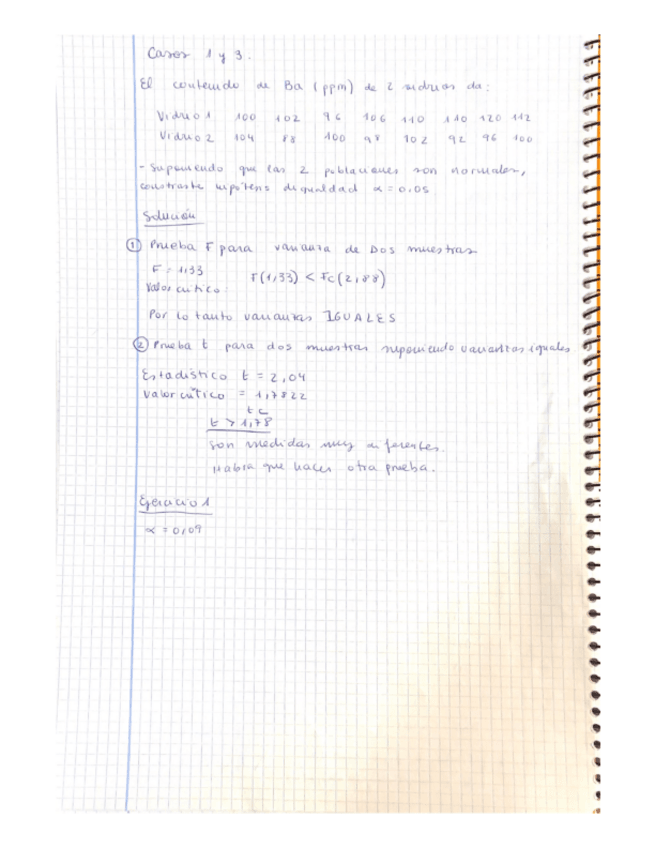 Casos 1 y 3.
El contenido de Ba (ppm) de 2 vidrios da:
Vidrio 1 100 102 96 106 110 110 120 112
Vidrio 2 104 88 100 98 102 92 96 100
- Suponiendo que las 2 poblaciones son normales,
constraste hipotesis de igualdad α = 0.05
Solución
① Prueba F para varianza de Dos muestras
F = 1,33
F(1,33) < Fc(2,88)
Valor crítico:
Por lo tanto varianzas IGUALES
② Prueba t para dos muestras suponiendo varianzas iguales
Estadístico t = 2,04
Valor crítico = 1,7822
tc
t > 1,78
Son medidas muy diferentes.
Habría que hacer otra prueba.
Ejercicio 1
α = 0,09